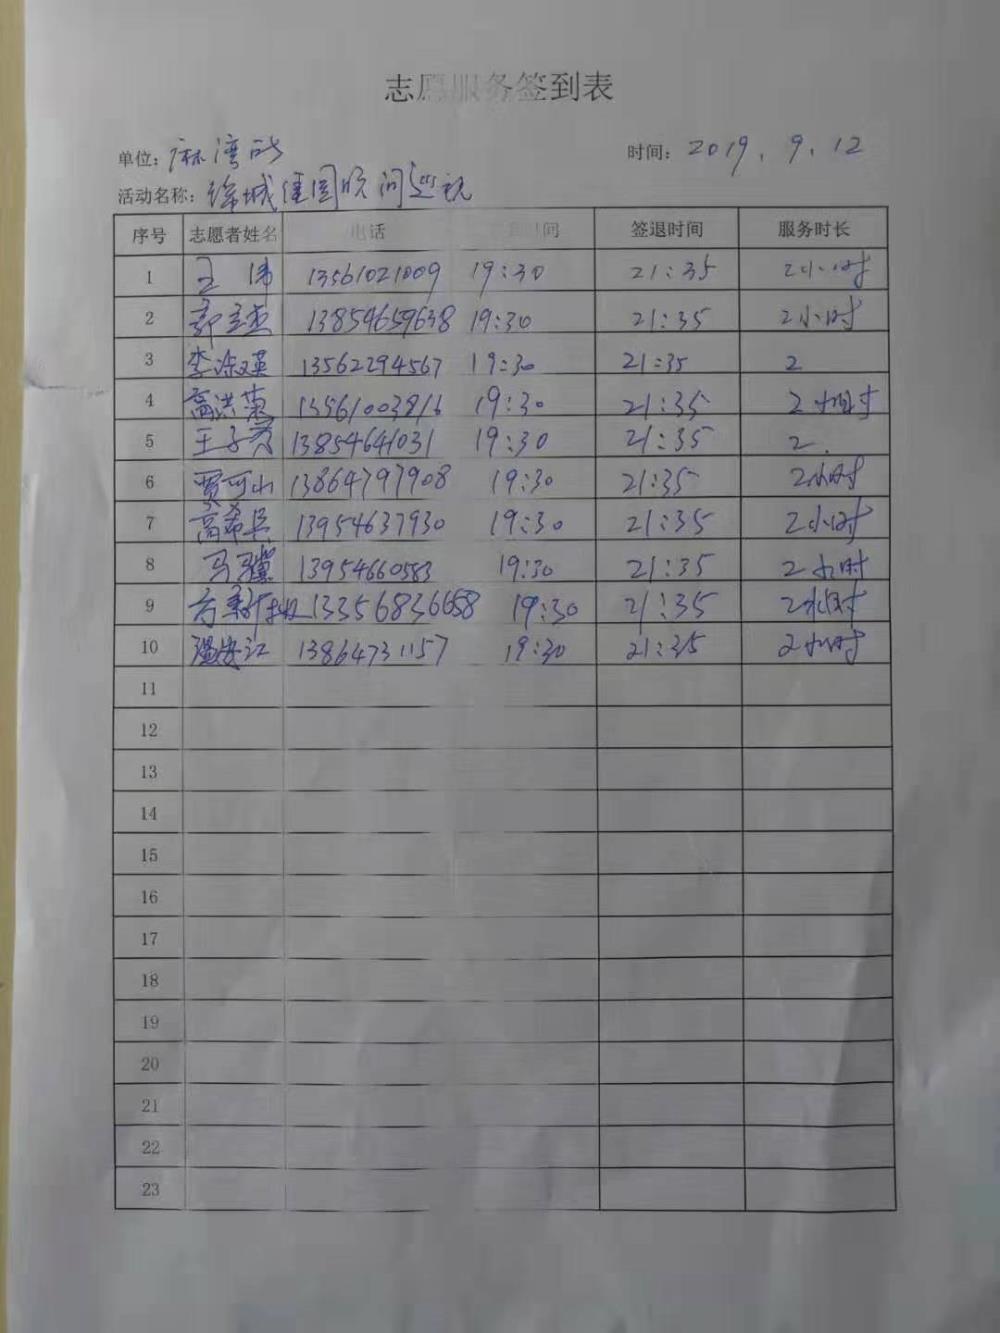 志愿服务签到表
单位: 麻湾所
时间: 2019.9.12
活动名称: 锦城佳园夜间巡视
序号 志愿者姓名 电话 间 签退时间 服务时长
1 王伟 13561021009 19:30 21:35 2小时
2 郭立杰 13854659638 19:30 21:35 2小时
3 李淑英 13562294567 19:30 21:35 2
4 高洪菊 13561003816 19:30 21:35 2小时
5 王子芳 13854641031 19:30 21:35 2.
6 贾可山 13864797908 19:30 21:35 2小时
7 高希兵 13954637930 19:30 21:35 2小时
8 马骥 13954660583 19:30 21:35 2小时
9 13356836658 19:30 21:35 2小时
10 温安江 13864731157 19:30 21:35 2小时
11
12
13
14
15
16
17
18
19
20
21
22
23